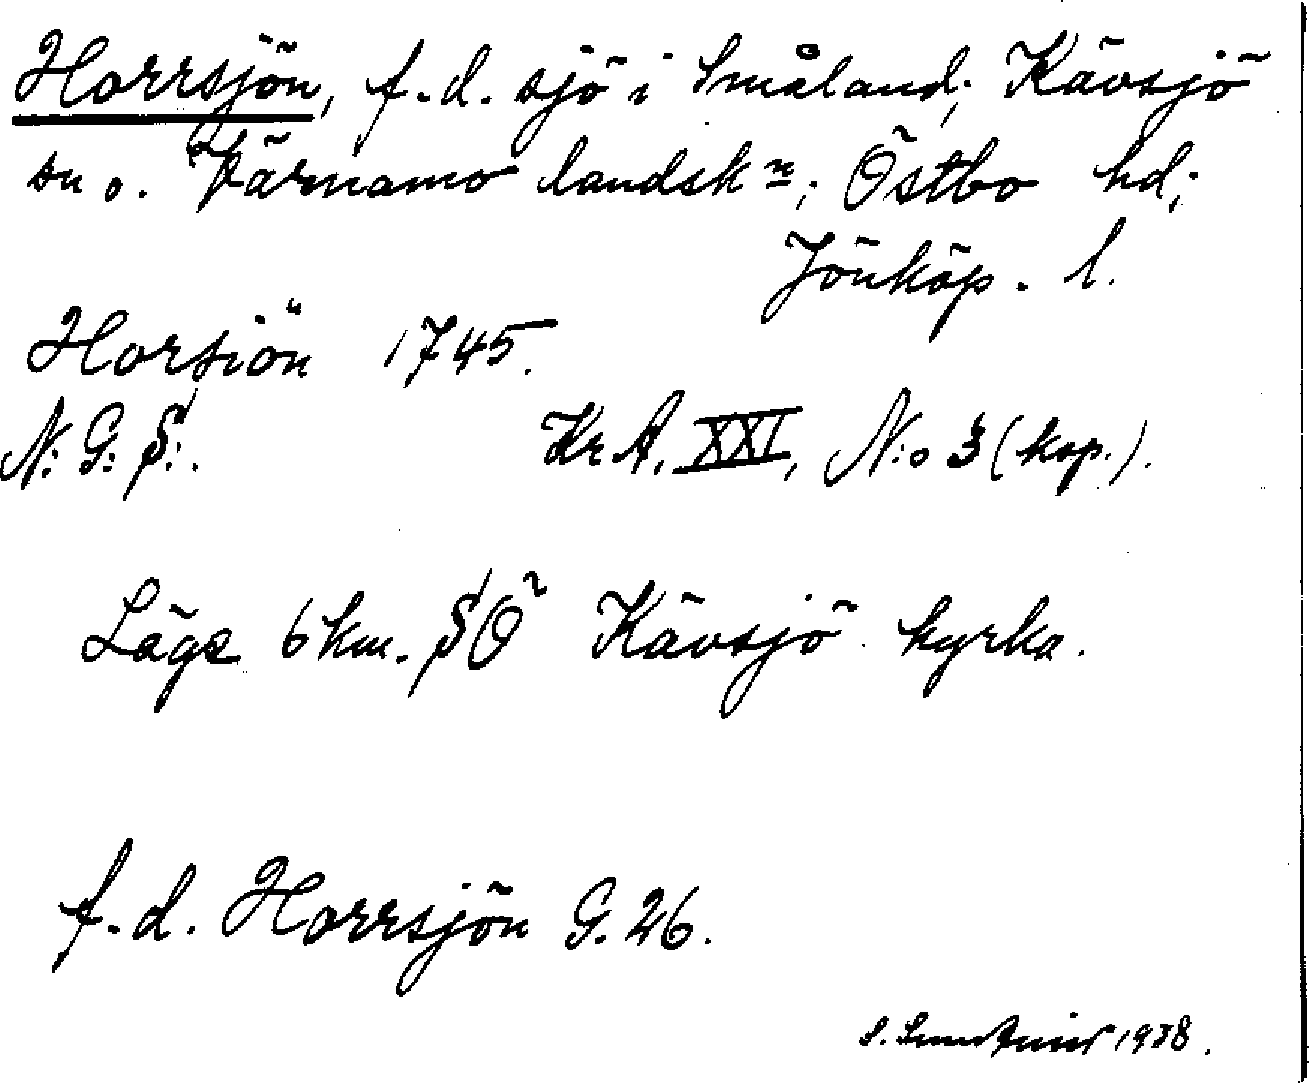 Horrsjön, f.d. sjö i Småland; Kävsjö
sn o. Värnamo landskn; Östbo hd;
Jönköp. l.
Horsiön 1745.
N: G: S:. Kr A, XXI, N:o 3 (kop.).
Läge 6 km. SÖ Kävsjö kyrka.
f.d. Horrsjön G. 26.
S. 1938.